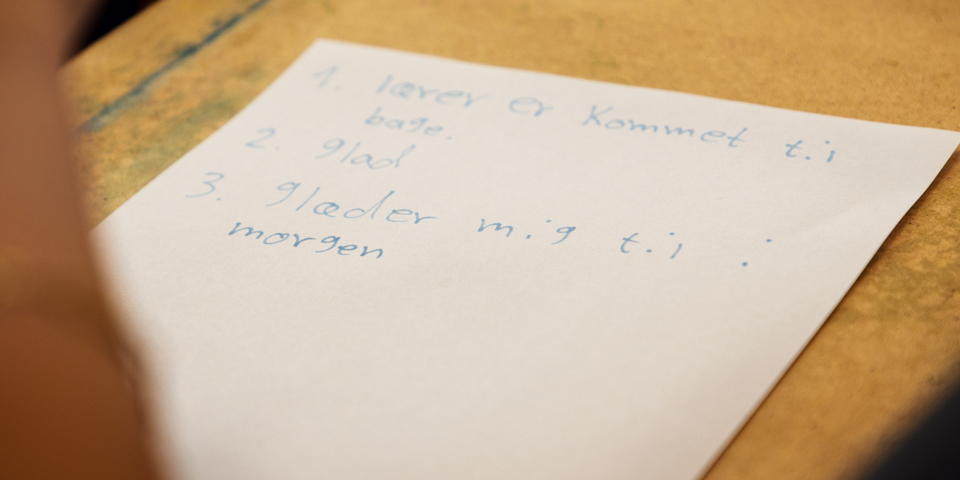 1. lærer er kommet til
bage.
2. glad
3. glæder mig til i
morgen